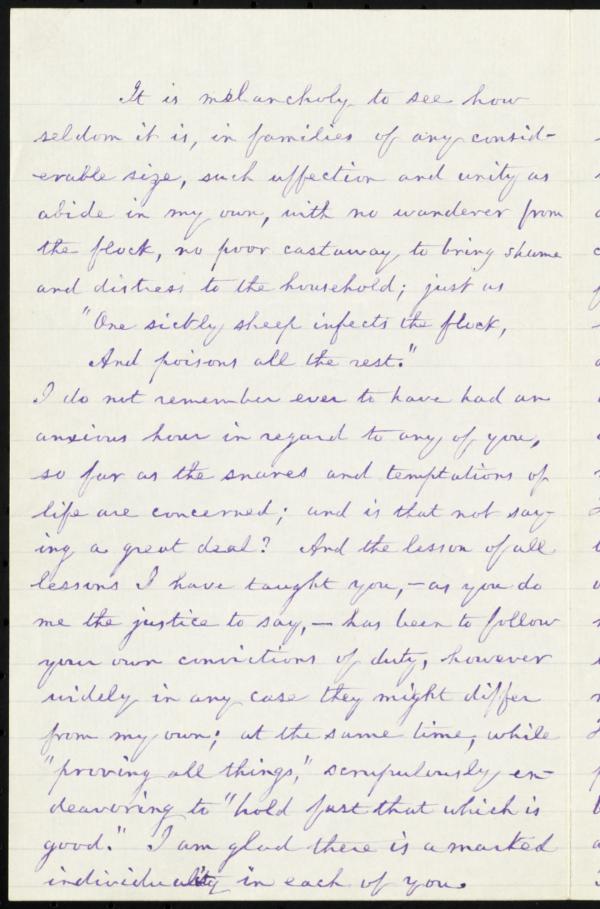 It is melancholy to see how
seldom it is, in families of any consid-
erable size, such affection and unity as
abide in my own, with no wanderer from
the flock, no poor castaway to bring shame
and distress to the household; just as
"One sickly sheep infects the flock,
And poisons all the rest."
I do not remember ever to have had an
anxious hour in regard to any of you,
so far as the snares and temptations of
life are concerned; and is that not say-
ing a great deal? And the lesson of all
lessons I have taught you,—as you do
me the justice to say,—has been to follow
your own convictions of duty, however
widely in any case they might differ
from my own; at the same time, while
"proving all things," scrupulously en-
deavoring to "hold fast that which is
good." I am glad there is a marked
individuality in each of you.